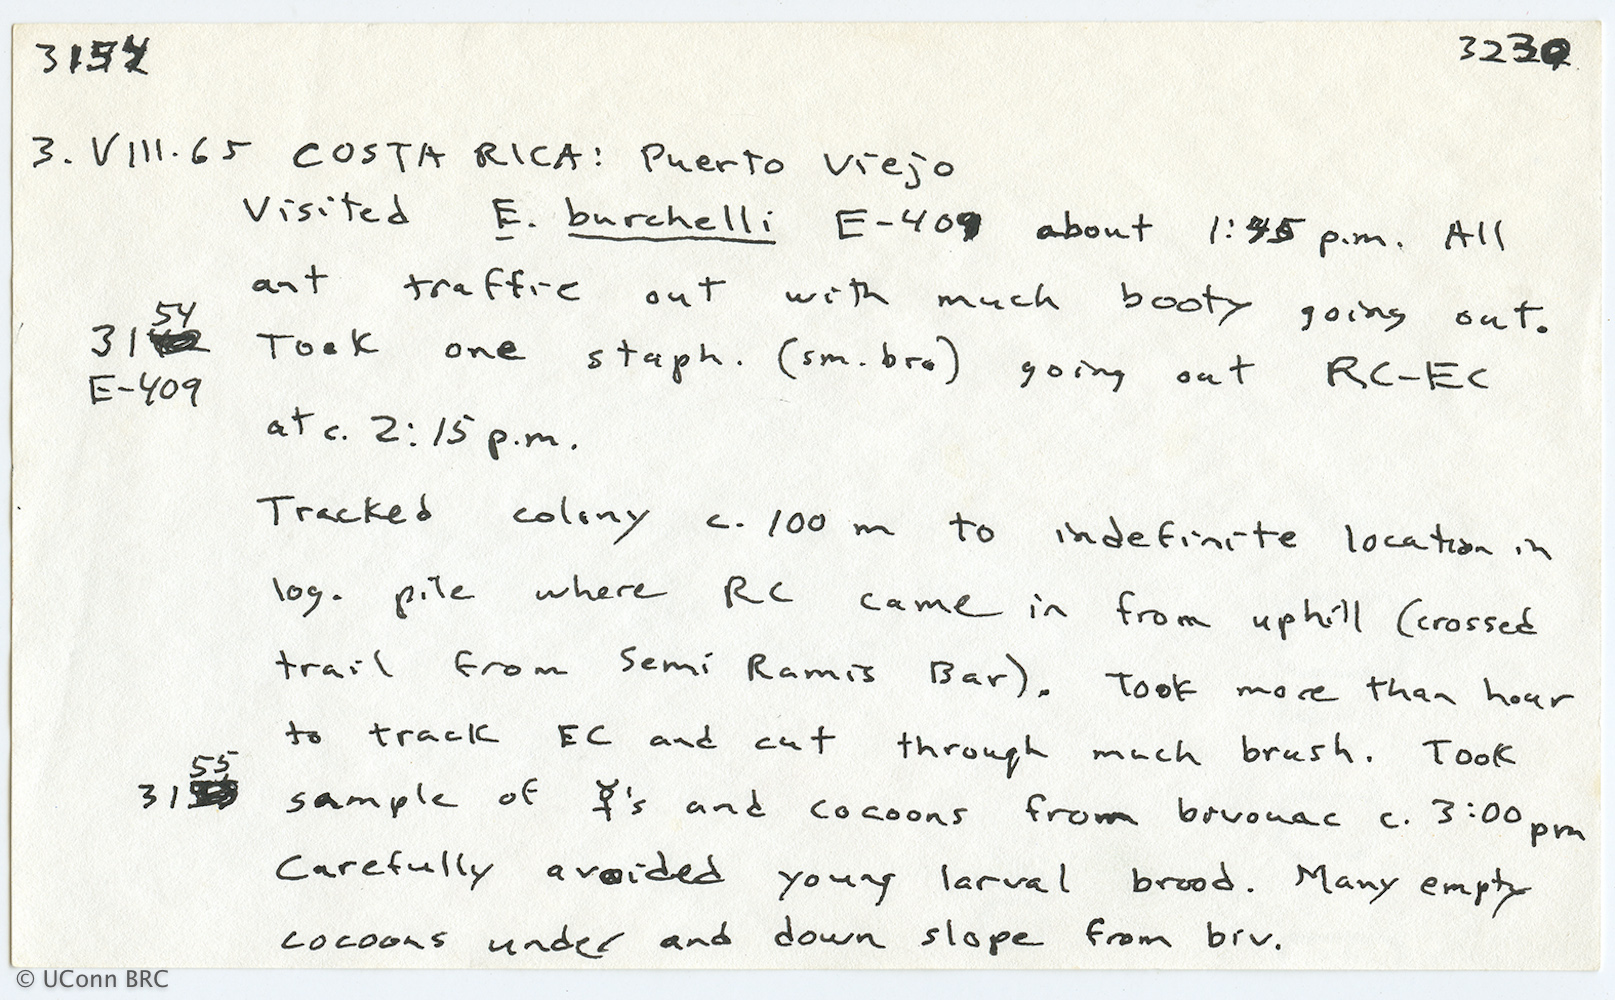 3154 3230
3.VIII.65 COSTA RICA: Puerto Viejo
Visited E. burchelli E-409 about 1:45 p.m. All
ant traffic out with much booty going out.
3154 Took one staph. (sm. bro) going out RC-EC
E-409
at c. 2:15 p.m.
Tracked colony c. 100 m to indefinite location in
log. pile where RC came in from uphill (crossed
trail from Semi Ramis Bar). Took more than hour
to track EC and cut through much brush. Took
3155 sample of ☿'s and cocoons from bivouac c. 3:00 pm
Carefully avoided young larval brood. Many empty
cocoons under and down slope from biv.
© UConn BRC